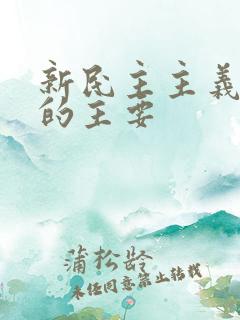 新民主主義
的王安
蒲松龄
未经同意禁止转载